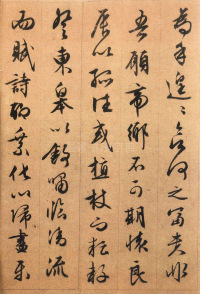 為乎遑遑欲何之富貴非
吾願帝鄉不可期懷良
辰以孤往或植杖而耘耔
登東皋以舒嘯臨清流
而賦詩聊乘化以歸盡樂